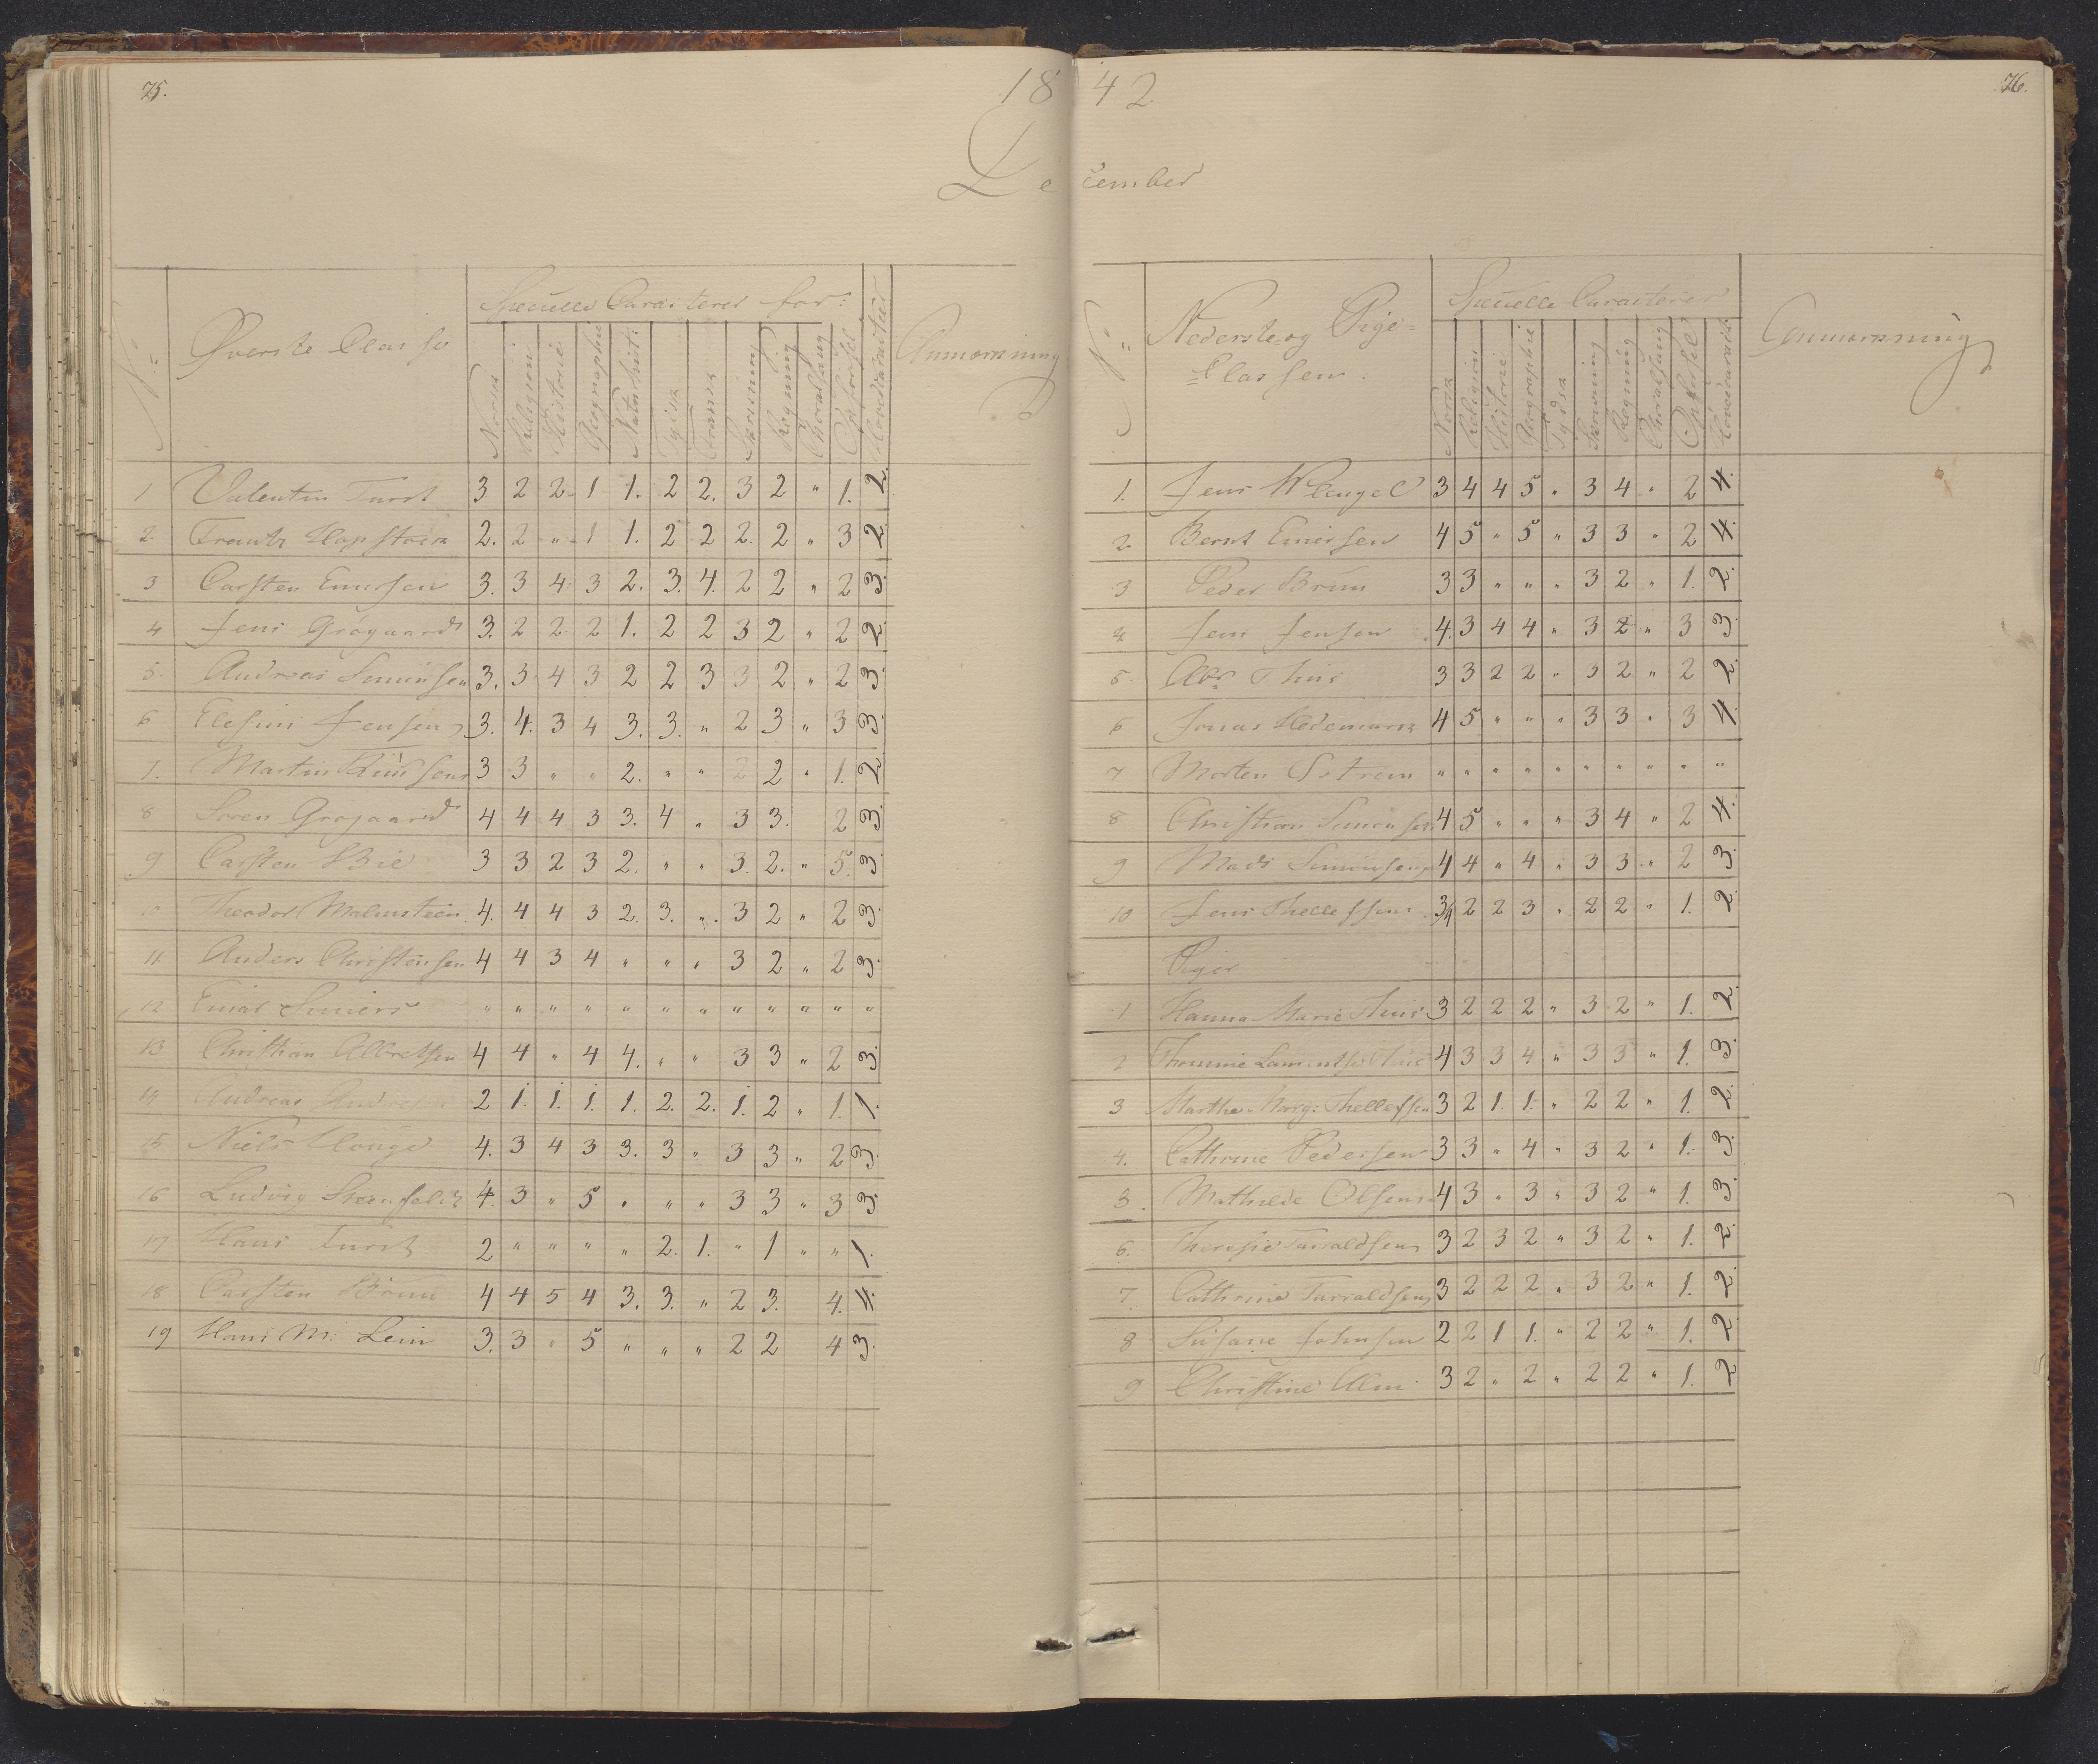 75.
1842
76.
December
No
Øverste Classe
Specielle Caracterer for:
Anmærkning
Norsk
Religion
Historie
Geographie
Naturhist:
Tydsk
Fransk
Skrivning
Regning
Choralsang
Opførsel
Hovedcaracter
1 Valentin Furst 3 2 2. 1 1. 2 2. 3 2 " 1. 2.
2. Frantz Hapstock 2. 2 " 1 1. 2 2 2. 2 " 3 2.
3 Carsten Enersen 3. 3 4 3 2. 3. 4. 2 2 " 2 3.
4 Jens Grøgaard 3. 2 2 2 1. 2 2 3 2 " 2 2.
5. Andreas Simonsen 3. 3 4 3 2 2 3 3 2 " 2 3.
6 Elesius Jensen 3. 4. 3 4 3. 3. " 2 3 " 3 3.
7. Martin 3 3 " " 2. " " 2 2 " 1. 2.
8 Søren Grøgaard 4 4 4 3 3. 4 " 3 3. 2 3.
9 Carsten Bie 3 3 2 3 2. " " 3. 2. " 5. 3.
10 Theodor Malmsteen 4. 4 4 3 2. 3. " 3 2 " 2 3.
11 Anders Christensen 4 4 3 4 " " " 3 2 " 2 3.
12 Einar Smiers " " " " " " " " " " " "
13 Christian Albretsen 4 4 " 4 4. " " 3 3 " 2 3.
14 Andreas 2 1. 1. 1. 1. 2. 2. 1. 2 " 1. 1.
15 Niels Houge 4. 3 4 3 3. 3 " 3 3 " 2 3.
16 Ludvig 4. 3 " 5 " " " 3 3 " 3 3.
17 Hans Furst 2 " " " " 2. 1. " 1 " " 1.
18 Carsten Brun 4 4 5 4 3. 3. " 2 3. 4. 4.
19 Hans M. Lein 3. 3 " 5 " " " 2 2 4 3.
No
Nederste og Pige=
=Classen.
Specielle Caracterer
Anmærkning
Norsk
Religion
Historie
Geographie
Tydsk
Skrivning
Regning
Choralsang
Opførsel
Hovedcaract:
1. Jens Wlengel 3 4 4 5 " 3 4 " 2 4.
2. Bernt Enersen 4 5 " 5 " 3 3 " 2 4.
3 Peder Brun 3 3 " " " 3 2 " 1. 2.
4 Jens Jensen 4. 3 4 4 " 3 2 " 3 3.
5 Abr Thiis 3 3 2 2 " 3 2 " 2 2.
6 Jonas Hedemark 4 5 " " " 3 3 " 3 4.
7 Morten Østrem " " " " " " " " " "
8 Christian Simonsen 4 5 " " " 3 4 " 2 4.
9 Mads Simonsen 4 4 " 4 " 3 3 " 2 3.
10 Jens Thellefsen 3/4 2 2 3 " 2 2 " 1. 2.
Piger
1 Hanna Marie Thiis 3 2 2 2 " 3 2 " 1. 2.
2 Thomine 4 3 3 4 " 3 3 " 1. 3.
3 Marthe Marg: Thellefsen 3 2 1. 1. " 2 2 " 1. 2.
4. Cathrine Pedersen 3 3 " 4 " 3 2 " 1. 3.
5. Mathilde Olsen 4 3 " 3 " 3 2 " 1. 3.
6. Theresie Tarraldsen 3 2 3 2 " 3 2 " 1. 2.
7. Cathrine Tarraldsen 3 2 2 2 " 3 2 " 1. 2.
8 Susane Johnsen 2 2 1 1. " 2 2 " 1. 2.
9 Christine Alm 3 2 " 2 " 2 2 " 1. 2